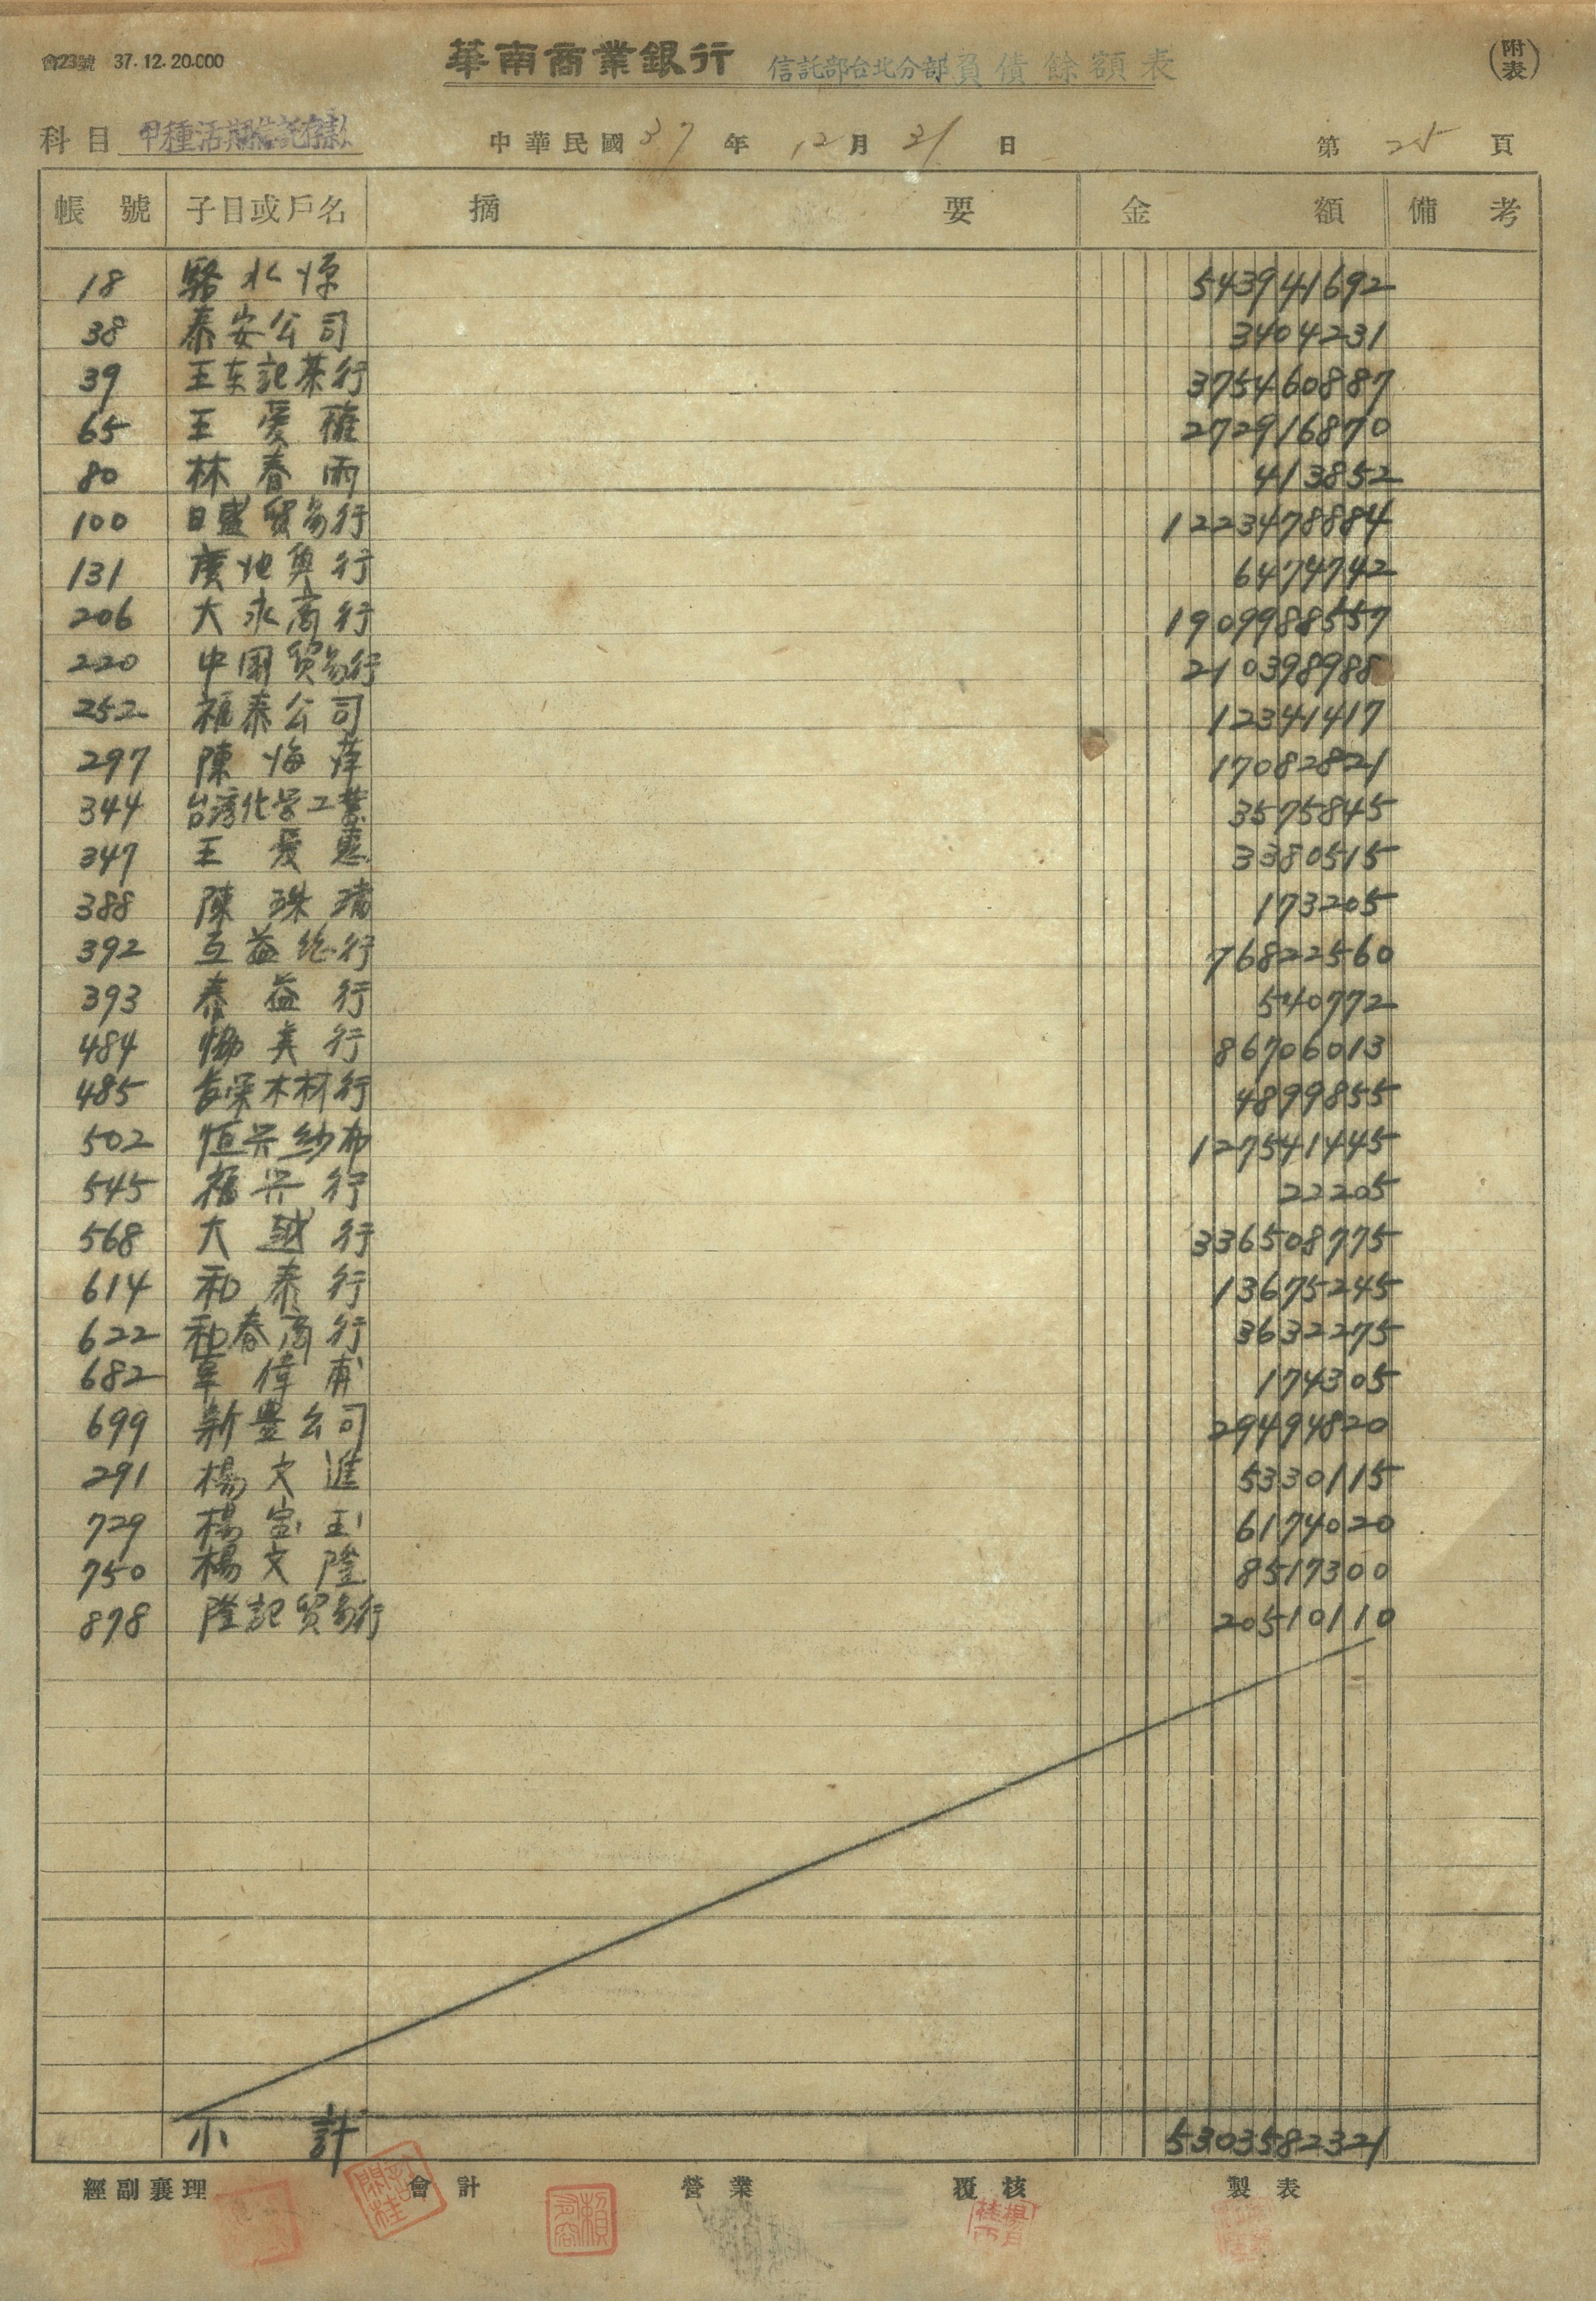 會23號 37.12.20.000
華南商業銀行 信託部台北分部負債餘額表 (附表)
科目 甲種活期信託存款 中華民國37年12月31日 第25頁
帳號 子目或戶名 摘要 金額 備考
18 駱水源 543941692
38 泰安公司 3404231
39 王东記茶行 375460887
65 王愛 272916870
80 林春雨 413852
100 日盛貿易行 1223478884
131 行 6474742
206 大永商行 1909988557
220 中國貿易行 210398988
252 福泰公司 12341417
297 陳海萍 17082821
344 台湾化学工業 3575845
347 王愛惠 3380515
388 陳珠 173205
392 互益行 76822560
393 泰益行 540772
484 協美行 86706013
485 木材行 4899855
502 恒兴紗布 127541445
545 福兴行 22205
568 大越行 336508775
614 和泰行 13675245
622 和春商行 3632275
682 韋偉甫 174305
699 新豐公司 29494820
291 楊文進 5330115
729 楊宝玉 6174020
750 楊文隆 8517300
878 隆記貿易行 20510110
小計 5303582321
經副襄理 會計 營業 覆核 製表